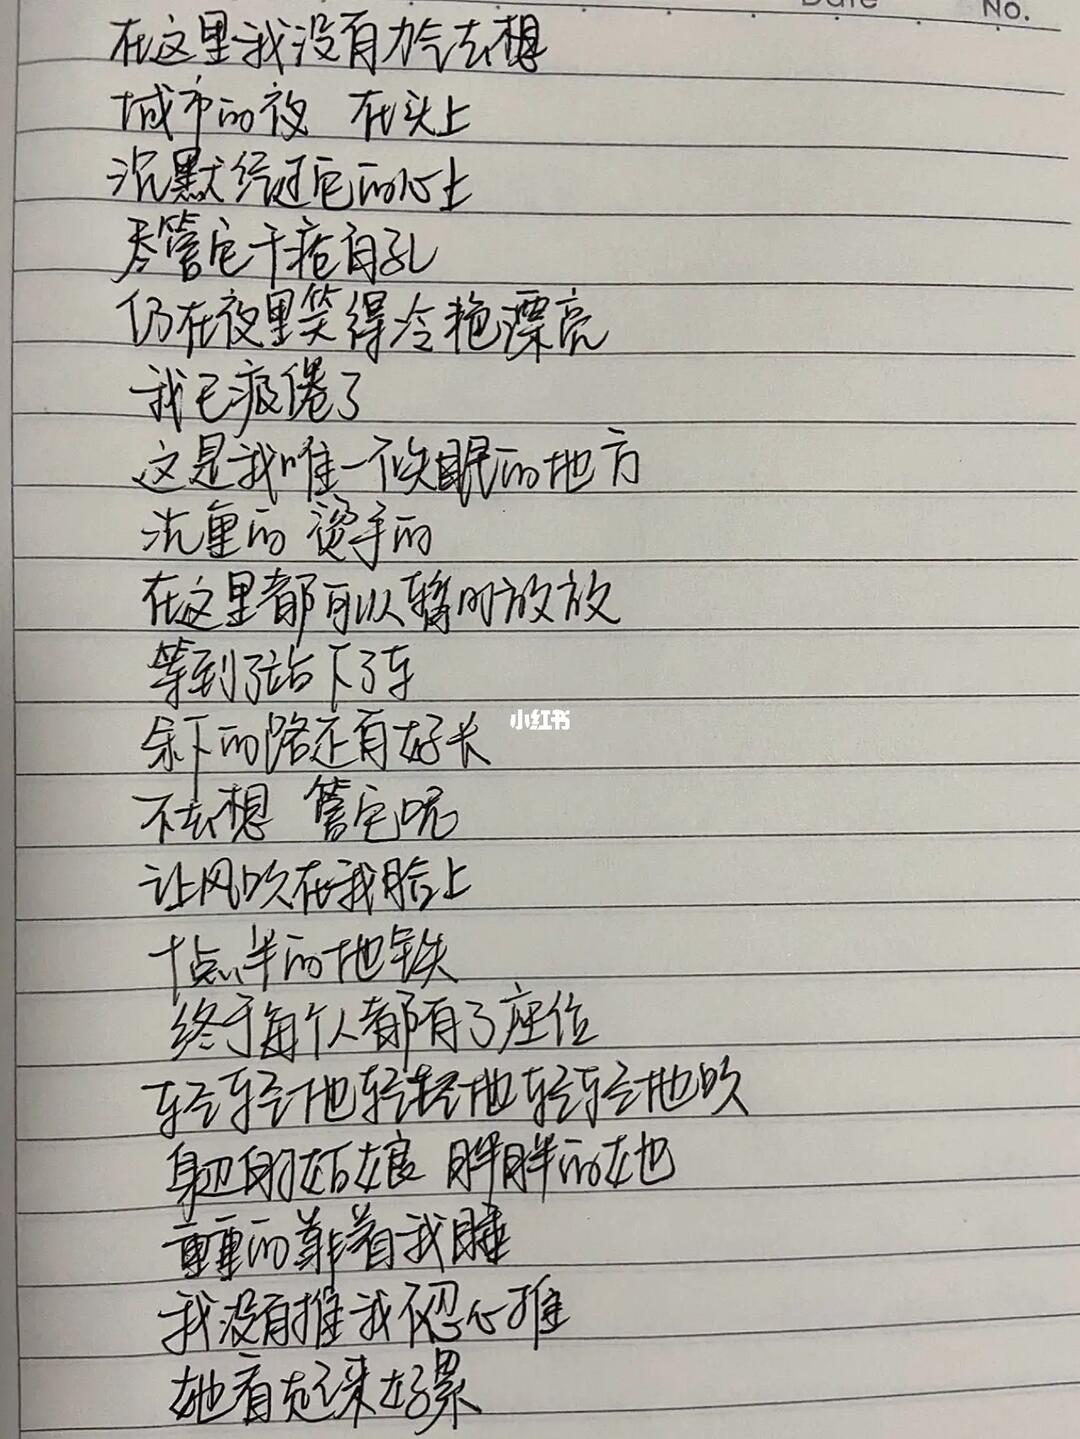 Date
No.
在这里我没有力气去想
城市的夜 在头上
沉默经过它的心上
尽管它千疮百孔
仍在夜里笑得冷艳漂亮
我已疲倦了
这是我唯一不失眠的地方
沉重的 烫手的
在这里都可以暂时放放
等到了站下了车
余下的路还有好长
不去想 管它呢
让风吹在我脸上
十点半的地铁
终于每个人都有了座位
轻轻地轻轻地轻轻地吹
身边的姑娘 胖胖的她
重重的靠着我睡
我没有推我不忍心推
她看起来好累
小红书